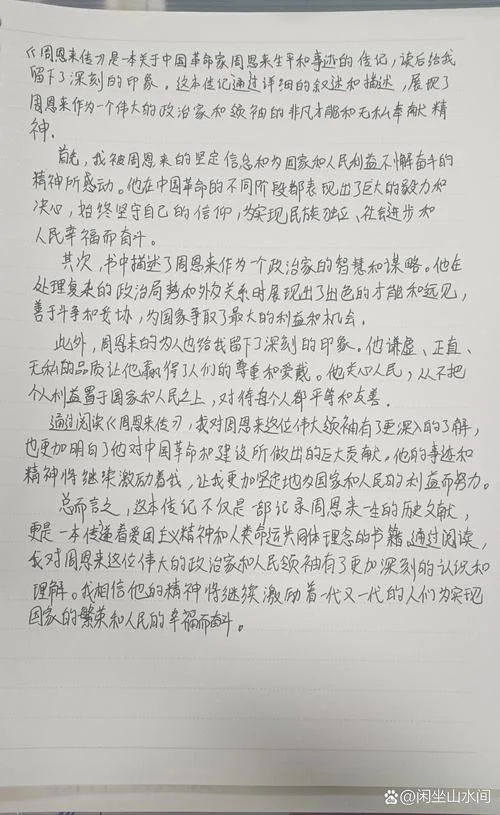 《周恩来传》是一本关于中国革命家周恩来生平和事迹的传记,读后给我
留下了深刻的印象。这本传记通过详细的叙述和描述,展现了
周恩来作为一个伟大的政治家和领袖的非凡才能和无私奉献精
神.
首先,我被周恩来的坚定信念和为国家和人民利益不懈奋斗的
精神所感动。他在中国革命的不同阶段都表现出了巨大的毅力和
决心,始终坚守自己的信仰,为实现民族独立、社会进步和
人民幸福而奋斗。
其次,书中描述了周恩来作为一个政治家的智慧和谋略。他在
处理复杂的政治局势和外交关系时展现出了出色的才能和远见,
善于斗争和妥协,为国家争取了最大的利益和机会.
此外,周恩来的为人也给我留下了深刻的印象。他谦虚、正直、
无私的品质让他赢得了人们的尊重和爱戴。他关心人民,从不把
个人利益置于国家和人民之上,对待每个人都平等和友善.
通过阅读《周恩来传》,我对周恩来这位伟大领袖有了更深入的了解,
也更加明白了他对中国革命和建设所做出的巨大贡献。他的事迹和
精神将继续激励着我,让我更加坚定地为国家和人民的利益而努力。
总而言之,这本传记不仅是一部记录周恩来一生的历史文献,
更是一本传递着爱国主义精神和人类命运共同体理念的书籍。通过阅读,
我对周恩来这位伟大的政治家和人民领袖有了更加深刻的认识和
理解。我相信他的精神将继续激励着一代又一代的人们为实现
国家的繁荣和人民的幸福而奋斗。
@闲坐山水间